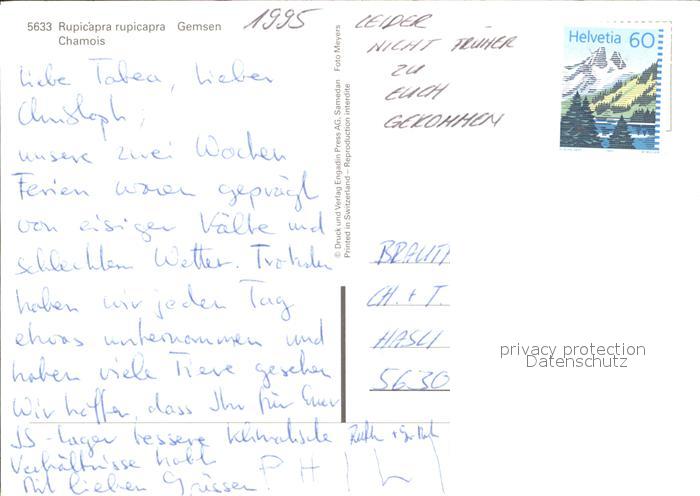 5633 Rupicapra rupicapra Gemsen
Chamois
1995
Liebe Tabea, lieber
Christoph,
unsere zwei Wochen
Ferien waren geprägt
von eisiger Kälte und
schlechtem Wetter. Trotzdem
haben wir jeden Tag
etwas unternommen und
haben viele Tiere gesehen
Wir hoffen, dass Ihr für Euer
JS-Lager bessere klimatische
Verhältnisse habt
Mit lieben Grüssen.
© Druck und Verlag Engadin Press AG, Samedan Foto Meyers
Printed in Switzerland – Reproduction interdite
LEIDER
NICHT FRÜHER
ZU
EUCH
GEKOMMEN
Helvetia 60
CH. + T.
HASLI
5630
privacy protection
Datenschutz